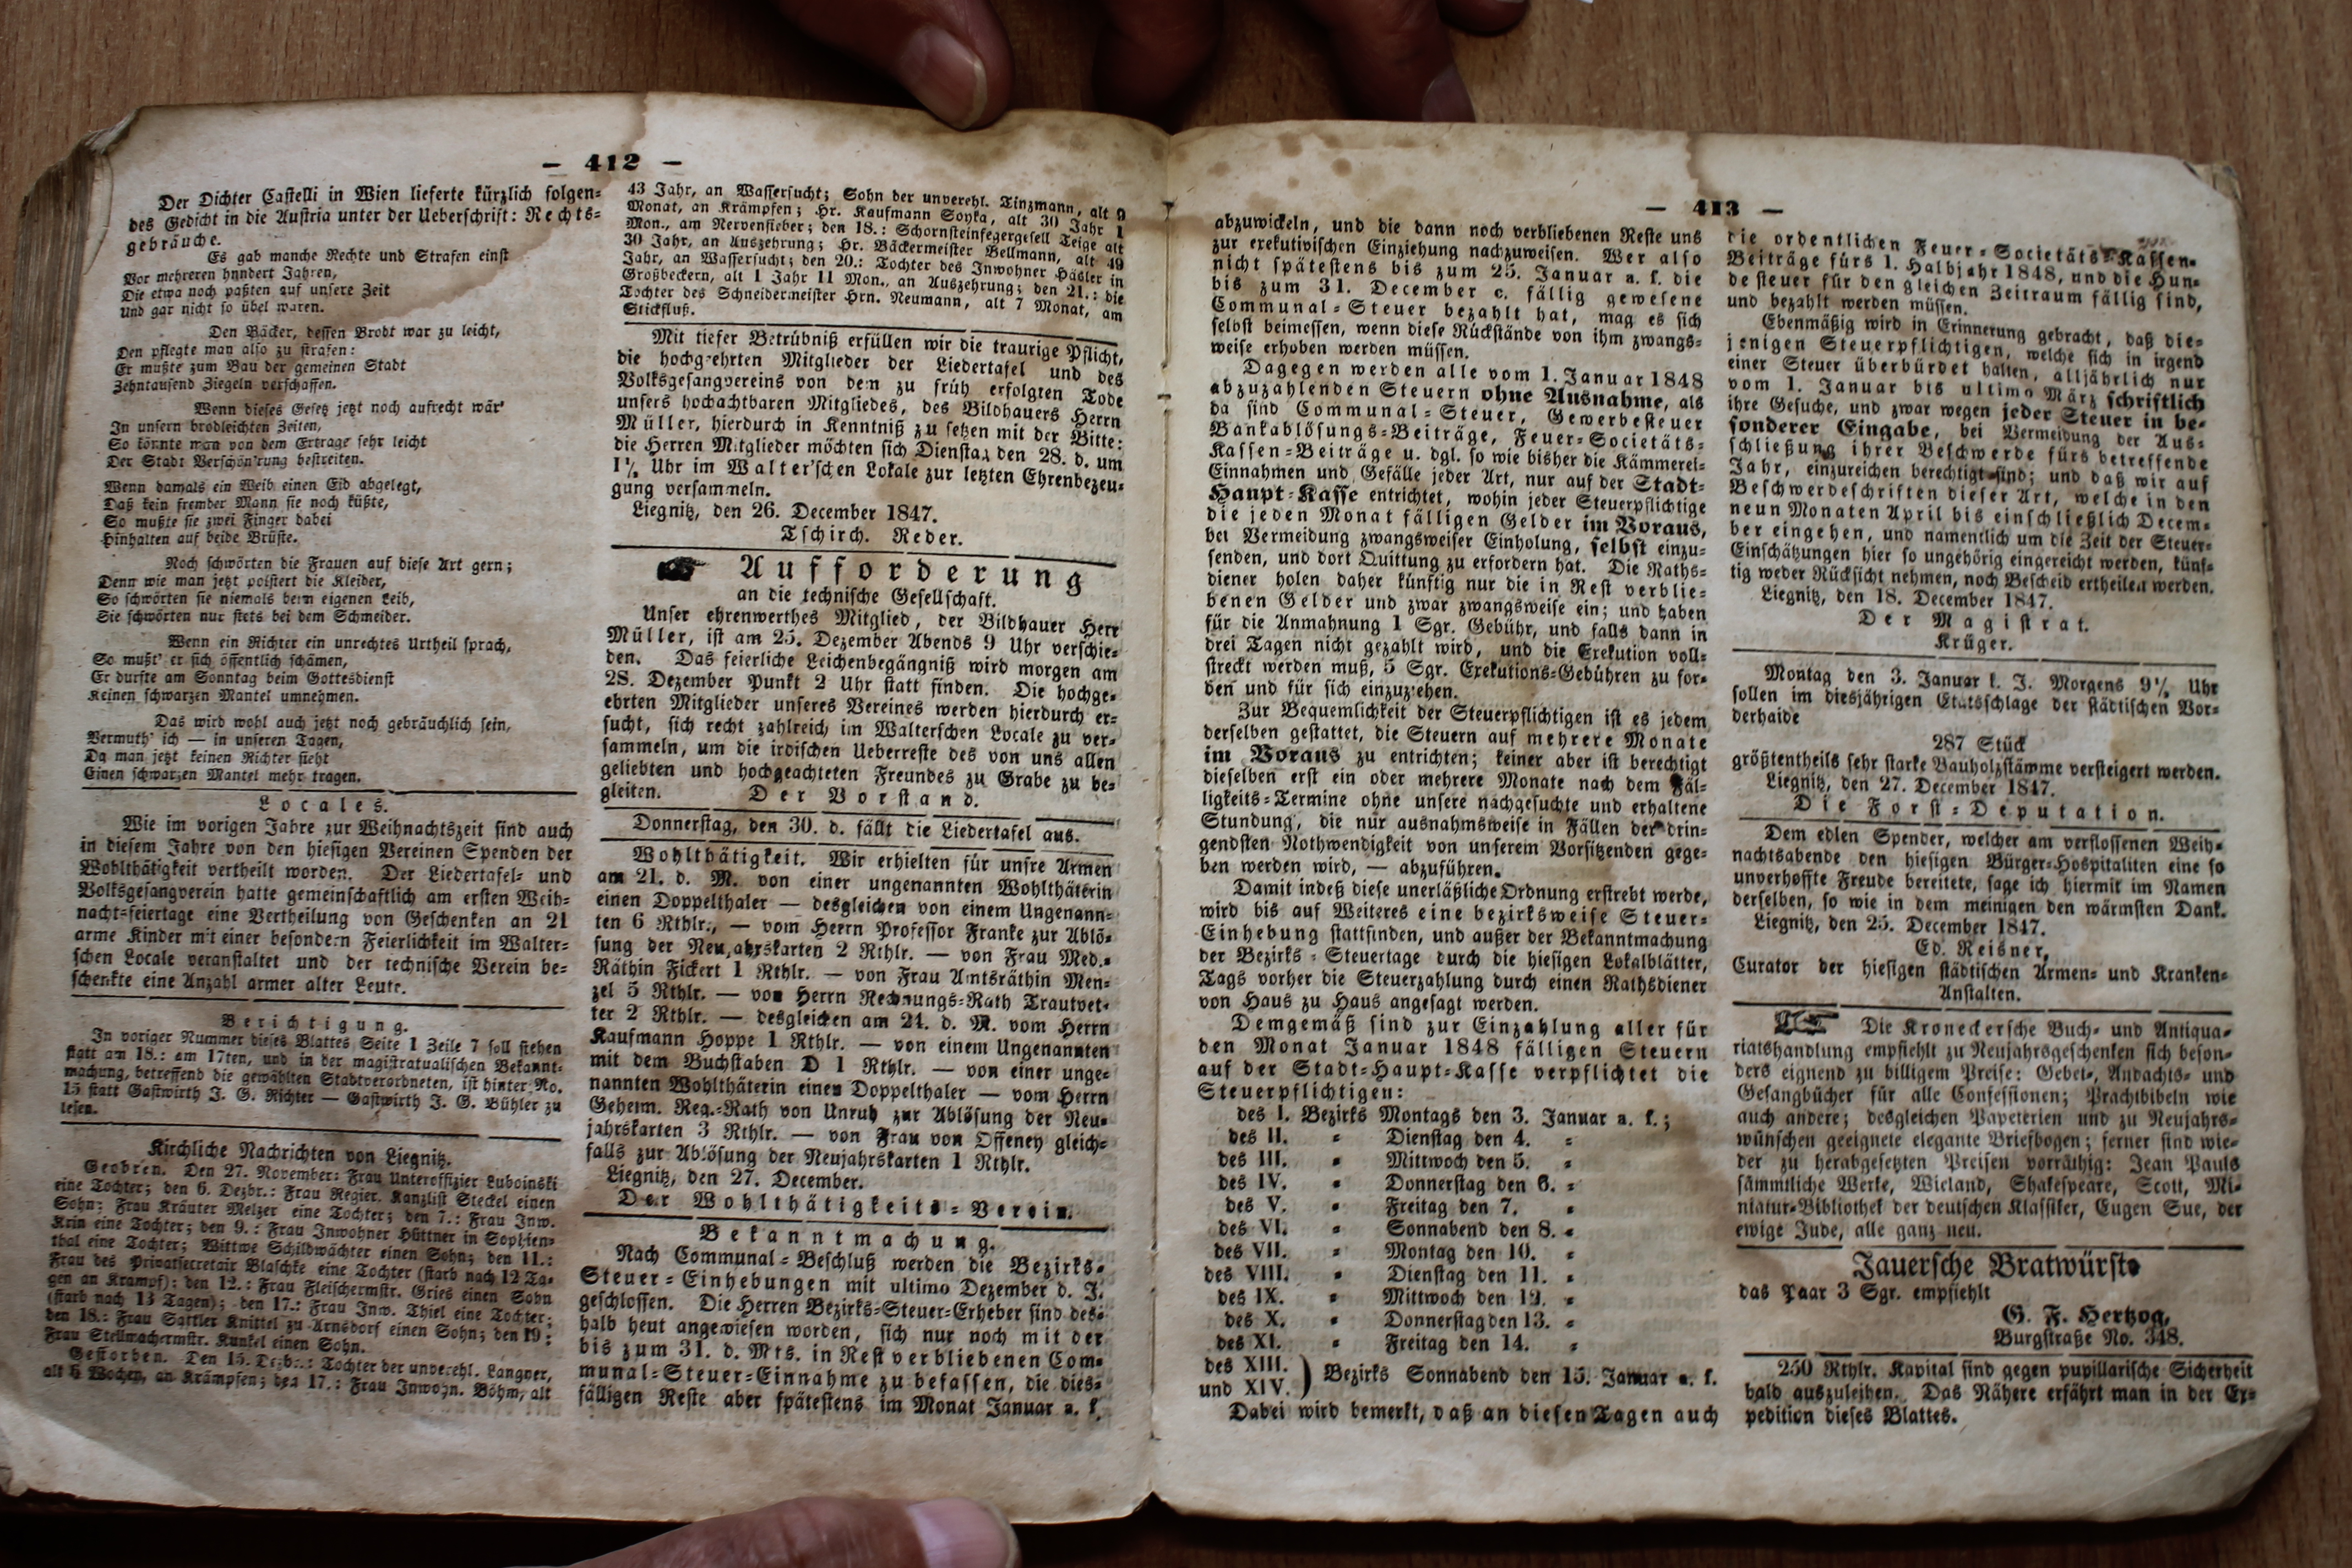 — 412 —
Der Dichter Castelli in Wien lieferte kürzlich folgen-
des Gedicht in die Austria unter der Ueberschrift: Rechts-
gebräuche.
Es gab manche Rechte und Strafen einst
Vor mehreren hundert Jahren,
Die etwa noch paßten auf unsere Zeit
Und gar nicht so übel waren.
Den Bäcker, dessen Brodt war zu leicht,
Den pflegte man also zu strafen:
Er mußte zum Bau der gemeinen Stadt
Zehntausend Ziegeln verschaffen.
Wenn dieses Gesetz jetzt noch aufrecht wär'
In unsern brodleichten Zeiten,
So könnte man von dem Ertrage sehr leicht
Der Stadt Verschön'rung bestreiten.
Wenn damals ein Weib einen Eid abgelegt,
Daß kein fremder Mann sie noch küßte,
So mußte sie zwei Finger dabei
Hinhalten auf beide Brüste.
Noch schwörten die Frauen auf diese Art gern;
Denn wie man jetzt polstert die Kleider,
So schwörten sie niemals beim eigenen Leib,
Sie schwörten nur stets bei dem Schneider.
Wenn ein Richter ein unrechtes Urtheil sprach,
So mußt' er sich öffentlich schämen,
Er durfte am Sonntag beim Gottesdienst
Keinen schwarzen Mantel umnehmen.
Das wird wohl auch jetzt noch gebräuchlich sein,
Vermuth' ich — in unseren Tagen,
Da man jetzt keinen Richter sieht
Einen schwarzen Mantel mehr tragen.
Locales.
Wie im vorigen Jahre zur Weihnachtszeit sind auch
in diesem Jahre von den hiesigen Vereinen Spenden der
Wohlthätigkeit vertheilt worden. Der Liedertafel- und
Volksgesangverein hatte gemeinschaftlich am ersten Weih-
nachtsfeiertage eine Vertheilung von Geschenken an 21
arme Kinder mit einer besondern Feierlichkeit im Walter-
schen Locale veranstaltet und der technische Verein be-
schenkte eine Anzahl armer alter Leute.
Berichtigung.
In voriger Nummer dieses Blattes Seite 1 Zeile 7 soll stehen
statt am 18.: am 17ten, und in der magistratualischen Bekannt-
machung, betreffend die gewählten Stadtverordneten, ist hinter No.
15 statt Gastwirth J. G. Richter — Gastwirth J. G. Bühler zu
lesen.
Kirchliche Nachrichten von Liegnitz.
Geobren. Den 27. November: Frau Unteroffizier Luboinski
eine Tochter; den 6. Dezbr.: Frau Regier. Kanzlist Steckel einen
Sohn; Frau Kräuter Melzer eine Tochter; den 7.: Frau Inw.
Krin eine Tochter; den 9.: Frau Inwohner Hüttner in Sophien-
thal eine Tochter; Wittwe Schildwächter einen Sohn; den 11.:
Frau des Privatsecretair Blaschke eine Tochter (starb nach 12 Ta-
gen an Krampf); den 12.: Frau Fleischermstr. Gries einen Sohn
(starb nach 13 Tagen); den 17.: Frau Inw. Thiel eine Tochter;
den 18.: Frau Sattler Knittel zu Arnsdorf einen Sohn; den 19:
Frau Stellmachermstr. Kunkel einen Sohn.
Gestorben. Den 15. Dezbr.: Tochter der unverehl. Langner,
alt 6 Wochen, an Krämpfen; den 17.: Frau Inwohn. Böhm, alt
43 Jahr, an Wassersucht; Sohn der unverehl. Tinzmann, alt 9
Monat, an Krämpfen; Hr. Kaufmann Soyka, alt 30 Jahr 1
Mon., am Nervenfieber; den 18.: Schornsteinfegergesell Teige alt
30 Jahr, an Auszehrung; Hr. Bäckermeister Bellmann, alt 49
Jahr, an Wassersucht; den 20.: Tochter des Inwohner Häsler in
Großbeckern, alt 1 Jahr 11 Mon., an Auszehrung; den 21.: die
Tochter des Schneidermeister Hrn. Neumann, alt 7 Monat, am
Stickfluß.
Mit tiefer Betrübniß erfüllen wir die traurige Pflicht,
die hochgeehrten Mitglieder der Liedertafel und des
Volksgesangvereins von dem zu früh erfolgten Tode
unsers hochachtbaren Mitgliedes, des Bildhauers Herrn
Müller, hierdurch in Kenntniß zu setzen mit der Bitte:
die Herren Mitglieder möchten sich Dienstag den 28. d. um
1½ Uhr im Walter'schen Lokale zur letzten Ehrenbezeu-
gung versammeln.
Liegnitz, den 26. December 1847.
Tschirch. Reder.
☛ Aufforderung
an die technische Gesellschaft.
Unser ehrenwerthes Mitglied, der Bildhauer Herr
Müller, ist am 25. Dezember Abends 9 Uhr verschie-
den. Das feierliche Leichenbegängniß wird morgen am
28. Dezember Punkt 2 Uhr statt finden. Die hochge-
ehrten Mitglieder unseres Vereines werden hierdurch er-
sucht, sich recht zahlreich im Walterschen Locale zu ver-
sammeln, um die irdischen Ueberreste des von uns allen
geliebten und hochgeachteten Freundes zu Grabe zu be-
gleiten. Der Vorstand.
Donnerstag, den 30. d. fällt die Liedertafel aus.
Wohlthätigkeit. Wir erhielten für unsre Armen
am 21. d. M. von einer ungenannten Wohlthäterin
einen Doppelthaler — desgleichen von einem Ungenann-
ten 6 Rthlr., — vom Herrn Professor Franke zur Ablö-
sung der Neujahrskarten 2 Rthlr. — von Frau Med.-
Räthin Fickert 1 Rthlr. — von Frau Amtsräthin Men-
zel 5 Rthlr. — von Herrn Rechnungs-Rath Trautvet-
ter 2 Rthlr. — desgleichen am 24. d. M. vom Herrn
Kaufmann Hoppe 1 Rthlr. — von einem Ungenannten
mit dem Buchstaben D 1 Rthlr. — von einer unge-
nannten Wohlthäterin einen Doppelthaler — vom Herrn
Geheim. Reg.-Rath von Unruh zur Ablösung der Neu-
jahrskarten 3 Rthlr. — von Frau von Offeney gleich-
falls zur Ablösung der Neujahrskarten 1 Rthlr.
Liegnitz, den 27. December.
Der Wohlthätigkeits-Verein.
Bekanntmachung.
Nach Communal-Beschluß werden die Bezirks-
Steuer-Einhebungen mit ultimo Dezember d. J.
geschlossen. Die Herren Bezirks-Steuer-Erheber sind des-
halb heut angewiesen worden, sich nur noch mit der
bis zum 31. d. Mts. in Rest verbliebenen Com-
munal-Steuer-Einnahme zu befassen, die dies-
fälligen Reste aber spätestens im Monat Januar a. k.
— 413 —
abzuwickeln, und die dann noch verbliebenen Reste uns
zur exekutivischen Einziehung nachzuweisen. Wer also
nicht spätestens bis zum 25. Januar a. k. die
bis zum 31. December c. fällig gewesene
Communal-Steuer bezahlt hat, mag es sich
selbst beimessen, wenn diese Rückstände von ihm zwangs-
weise erhoben werden müssen.
Dagegen werden alle vom 1. Januar 1848
abzuzahlenden Steuern ohne Ausnahme, als
da sind Communal-Steuer, Gewerbesteuer
Bankablösungs-Beiträge, Feuer-Societäts-
Kassen-Beiträge u. dgl. so wie bisher die Kämmerei-
Einnahmen und Gefälle jeder Art, nur auf der Stadt-
Haupt-Kasse entrichtet, wohin jeder Steuerpflichtige
die jeden Monat fälligen Gelder im Voraus,
bei Vermeidung zwangsweiser Einholung, selbst einzu-
senden, und dort Quittung zu erfordern hat. Die Raths-
diener holen daher künftig nur die in Rest verblie-
benen Gelder und zwar zwangsweise ein; und haben
für die Anmahnung 1 Sgr. Gebühr, und falls dann in
drei Tagen nicht gezahlt wird, und die Exekution voll-
streckt werden muß, 5 Sgr. Exekutions-Gebühren zu for-
den und für sich einzuziehen.
Zur Bequemlichkeit der Steuerpflichtigen ist es jedem
derselben gestattet, die Steuern auf mehrere Monate
im Voraus zu entrichten; keiner aber ist berechtigt
dieselben erst ein oder mehrere Monate nach dem Fäl-
ligkeits-Termine ohne unsere nachgesuchte und erhaltene
Stundung, die nur ausnahmsweise in Fällen der drin-
gendsten Nothwendigkeit von unserem Vorsitzenden gege-
ben werden wird, — abzuführen.
Damit indeß diese unerläßliche Ordnung erstrebt werde,
wird bis auf Weiteres eine bezirksweise Steuer-
Einhebung stattfinden, und außer der Bekanntmachung
der Bezirks-Steuertage durch die hiesigen Lokalblätter,
Tags vorher die Steuerzahlung durch einen Rathsdiener
von Haus zu Haus angesagt werden.
Demgemäß sind zur Einzahlung aller für
den Monat Januar 1848 fälligen Steuern
auf der Stadt-Haupt-Kasse verpflichtet die
Steuerpflichtigen:
des I. Bezirks Montags den 3. Januar a. k.;
des II. = Dienstag den 4. =
des III. = Mittwoch den 5. =
des IV. = Donnerstag den 6. =
des V. = Freitag den 7. =
des VI. = Sonnabend den 8. =
des VII. = Montag den 10. =
des VIII. = Dienstag den 11. =
des IX. = Mittwoch den 12. =
des X. = Donnerstag den 13. =
des XI. = Freitag den 14. =
des XIII. und XIV. ) Bezirks Sonnabend den 15. Januar a. k.
Dabei wird bemerkt, daß an diesen Tagen auch
die ordentlichen Feuer-Societäts-Kassen-
Beiträge fürs 1. Halbjahr 1848, und die Hun-
de steuer für den gleichen Zeitraum fällig sind,
und bezahlt werden müssen.
Ebenmäßig wird in Erinnerung gebracht, daß die-
jenigen Steuerpflichtigen, welche sich in irgend
einer Steuer überbürdet halten, alljährlich nur
vom 1. Januar bis ultimo März schriftlich
ihre Gesuche, und zwar wegen jeder Steuer in be-
sonderer Eingabe, bei Vermeidung der Aus-
schließung ihrer Beschwerde fürs betreffende
Jahr, einzureichen berechtigt sind; und daß wir auf
Beschwerdeschriften dieser Art, welche in den
neun Monaten April bis einschließlich Decem-
ber eingehen, und namentlich um die Zeit der Steuer-
Einschätzungen hier so ungehörig eingereicht werden, künf-
tig weder Rücksicht nehmen, noch Bescheid ertheilen werden.
Liegnitz, den 18. December 1847.
Der Magistrat.
Krüger.
Montag den 3. Januar k. J. Morgens 9½ Uhr
sollen im diesjährigen Etatsschlage der städtischen Vor-
derhaide
287 Stück
größtentheils sehr starke Bauholzstämme versteigert werden.
Liegnitz, den 27. December 1847.
Die Forst-Deputation.
Dem edlen Spender, welcher am verflossenen Weih-
nachtsabende den hiesigen Bürger-Hospitaliten eine so
unverhoffte Freude bereitete, sage ich hiermit im Namen
derselben, so wie in dem meinigen den wärmsten Dank.
Liegnitz, den 25. December 1847.
Ed. Reisner,
Curator der hiesigen städtischen Armen- und Kranken-
Anstalten.
☞ Die Kroneckersche Buch- und Antiqua-
riatshandlung empfiehlt zu Neujahrsgeschenken sich beson-
ders eignend zu billigem Preise: Gebet-, Andachts- und
Gesangbücher für alle Confessionen; Prachtbibeln wie
auch andere; desgleichen Papeterien und zu Neujahrs-
wünschen geeignete elegante Briefbogen; ferner sind wie-
der zu herabgesetzten Preisen vorräthig: Jean Pauls
sämmtliche Werke, Wieland, Shakespeare, Scott, Mi-
niatur-Bibliothek der deutschen Klassiker, Eugen Sue, der
ewige Jude, alle ganz neu.
Jauersche Bratwürste
das Paar 3 Sgr. empfiehlt
G. F. Hertzog,
Burgstraße No. 348.
250 Rthlr. Kapital sind gegen pupillarische Sicherheit
bald auszuleihen. Das Nähere erfährt man in der Ex-
pedition dieses Blattes.